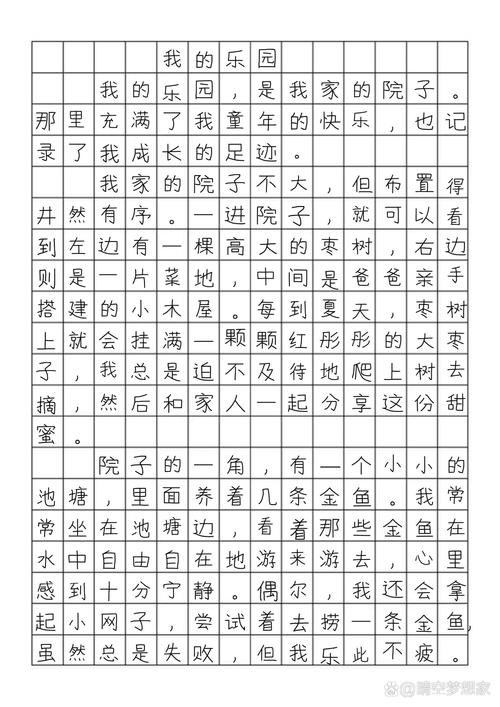 我的乐园
我的乐园，是我家的院子。
那里充满了我童年的快乐，也记
录了我成长的足迹。
我家的院子不大，但布置得
井然有序。一进院子，就可以看
到左边有一棵高大的枣树，右边
则是一片菜地，中间是爸爸亲手
搭建的小木屋。每到夏天，枣树
上就会挂满一颗颗红彤彤的大枣
子，我总是迫不及待地爬上树去
摘，然后和家人一起分享这份甜
蜜。
院子的一角，有一个小小的
池塘，里面养着几条金鱼。我常
常坐在池塘边，看着那些金鱼在
水中自由自在地游来游去，心里
感到十分宁静。偶尔，我还会拿
起小网子，尝试着去捞一条金鱼，
虽然总是失败，但我乐此不疲。
@晴空梦想家